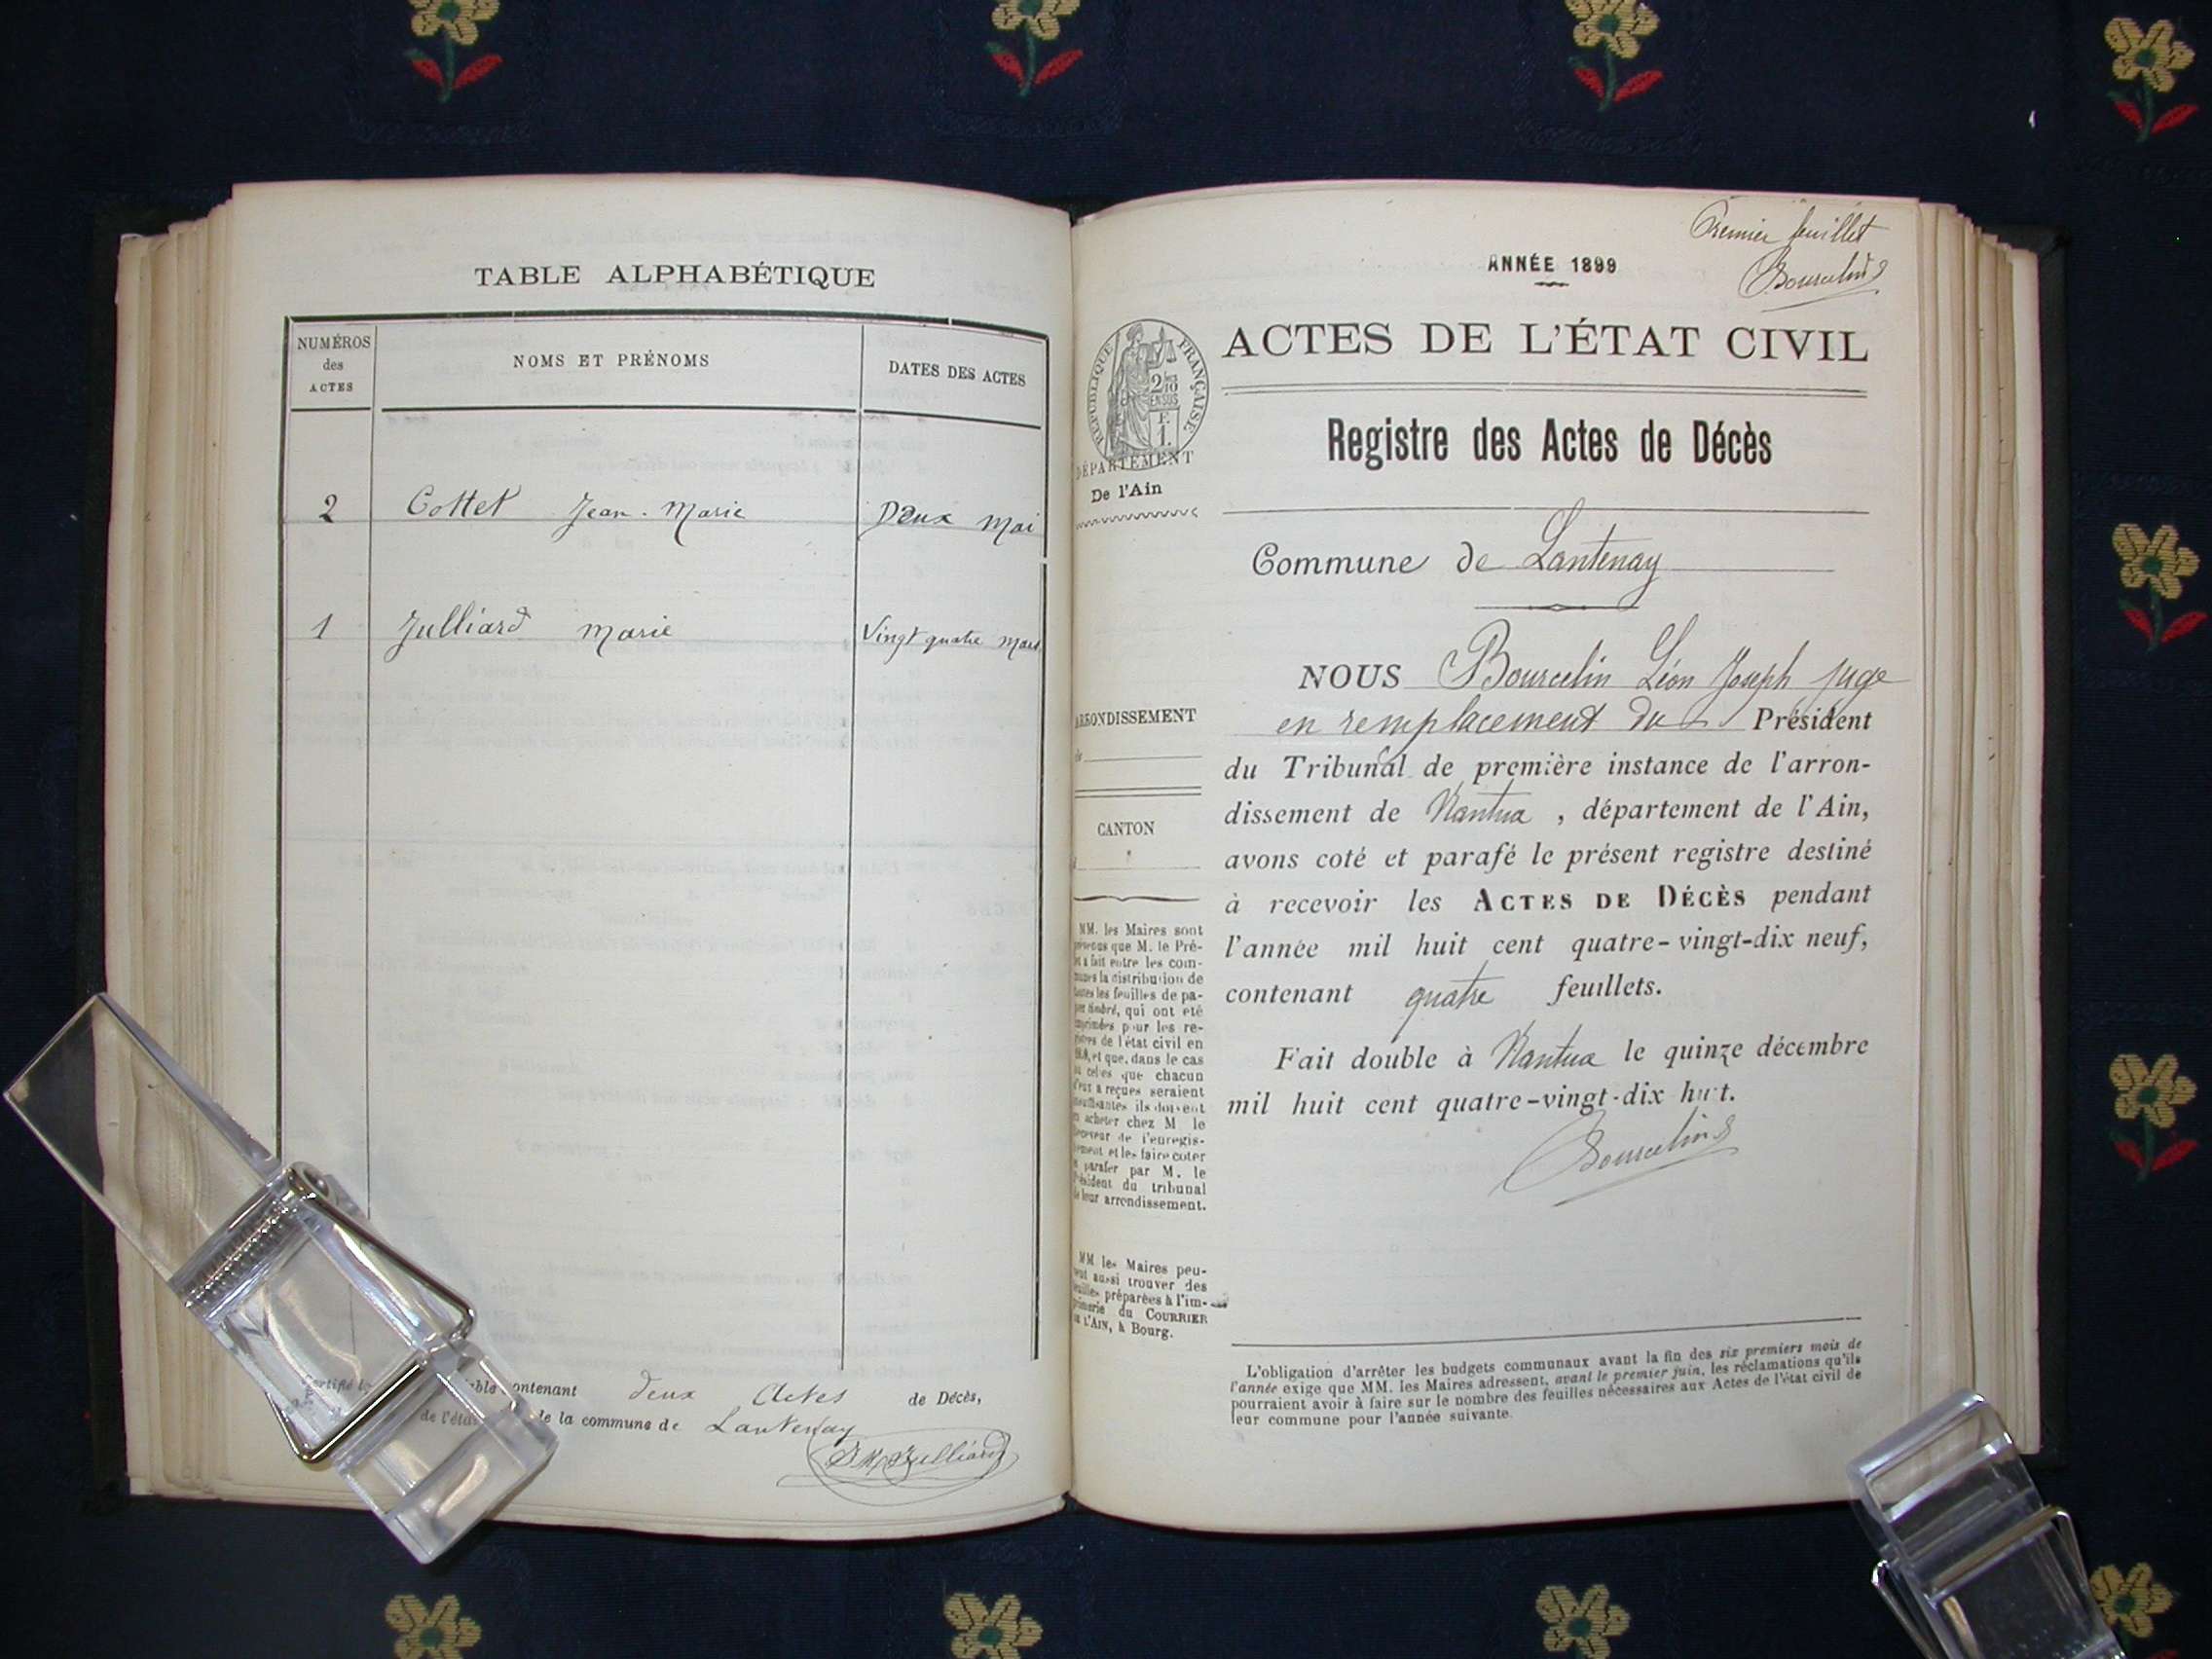 TABLE ALPHABÉTIQUE
NUMÉROS
des
ACTES
NOMS ET PRÉNOMS
DATES DES ACTES
2 Cottet Jean-Marie Deux Mai
1 Julliard Marie Vingt quatre mars
contenant deux Actes de Décès,
de la commune de Lantenay
Julliard
Premier feuillet
Bourcelin
ANNÉE 1899
ACTES DE L'ÉTAT CIVIL
RÉPUBLIQUE FRANÇAISE
DÉPARTEMENT
De l'Ain
Registre des Actes de Décès
Commune de Lantenay
NOUS Bourcelin Léon Joseph juge
en remplacement du Président
du Tribunal de première instance de l'arron-
dissement de Nantua, département de l'Ain,
avons coté et parafé le présent registre destiné
à recevoir les ACTES DE DÉCÈS pendant
l'année mil huit cent quatre-vingt-dix neuf,
contenant quatre feuillets.
Fait double à Nantua le quinze décembre
mil huit cent quatre-vingt-dix huit.
Bourcelin
ARRONDISSEMENT
CANTON
MM. les Maires sont
que M. le Pré-
a fait entre les com-
la distribution de
les feuilles de pa-
timbré, qui ont été
pour les re-
de l'état civil en
et que, dans le cas
que chacun
reçues seraient
ils doivent
acheter chez M le
de l'enregis-
et les faire coter
parafer par M. le
Président du tribunal
de leur arrondissement.
MM les Maires peu-
aussi trouver des
préparées à l'im-
du COURRIER
DE L'AIN, à Bourg.
L'obligation d'arrêter les budgets communaux avant la fin des six premiers mois de
l'année exige que MM. les Maires adressent, avant le premier juin, les réclamations qu'ils
pourraient avoir à faire sur le nombre des feuilles nécessaires aux Actes de l'état civil de
leur commune pour l'année suivante.